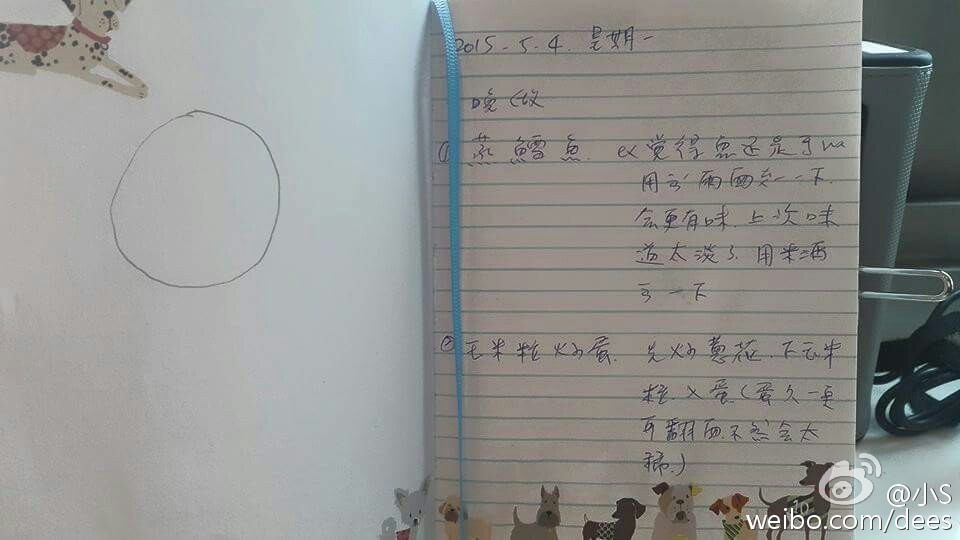 2015.5.4. 星期一
晚飯
① 蒸鱈魚. 覺得魚還是
用 兩面 一下
会更有味.上次味
道太淡了.用米酒
一下
② 玉米粒炒蛋. 先炒蔥花.下玉米
粒.X蛋(蛋久一
再翻面不然会太
稀.)
@小S
weibo.com/dees